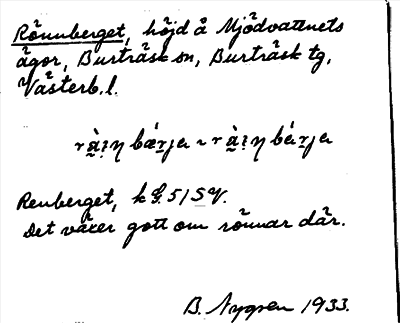 Rönnberget, höjd å Mjödvattnets
ägor, Burträsk sn, Burträsk tg,
Västerb. l.
Renberget, k
Det växer gott om rönnar där.
B. Nygren 1933.